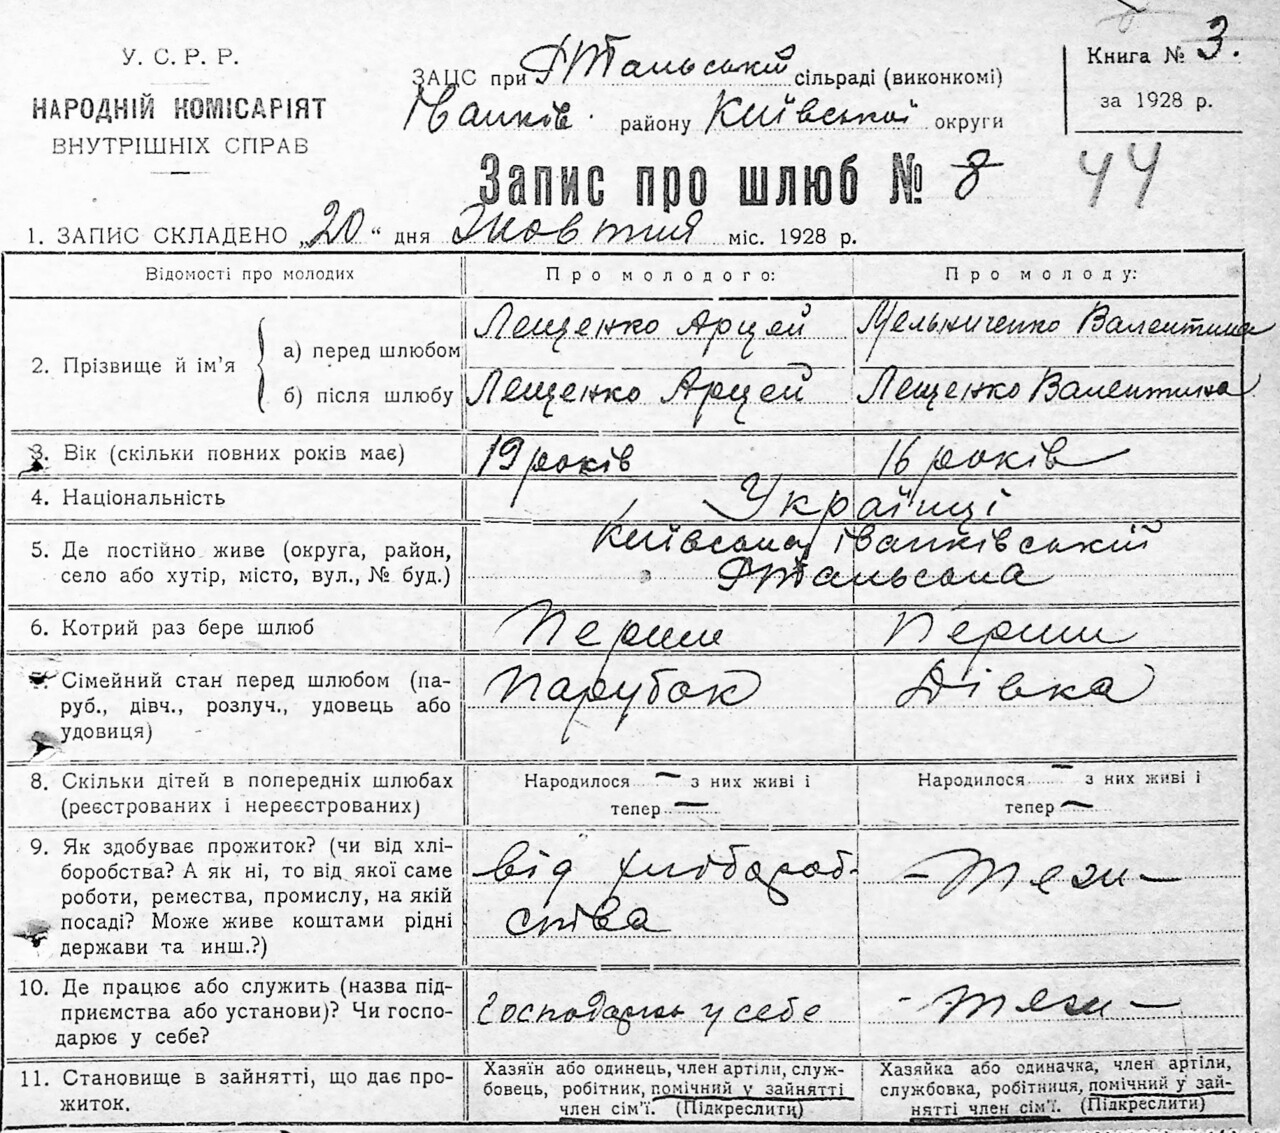 У. С. Р. Р.
НАРОДНІЙ КОМІСАРІЯТ
ВНУТРІШНІХ СПРАВ
ЗАЦС при сільраді (виконкомі)
району Київської округи
Книга № 3.
за 1928 р.
Запис про шлюб № 8
44
1. ЗАПИС СКЛАДЕНО „20“ дня Жовтня міс. 1928 р.
Відомості про молодих
Про молодого:
Про молоду:
2. Прізвище й ім’я
а) перед шлюбом
Лещенко Арцей
Мельниченко Валентина
б) після шлюбу
Лещенко Арцей
Лещенко Валентина
3. Вік (скільки повних років має)
19 років
16 років
4. Національність
Українці
5. Де постійно живе (округа, район,
село або хутір, місто, вул., № буд.)
Київська іванківський
6. Котрий раз бере шлюб
Перший
Перший
7. Сімейний стан перед шлюбом (па-
руб., дівч., розлуч., удовець або
удовиця)
Парубок
Дівка
8. Скільки дітей в попередніх шлюбах
(реєстрованих і нереєстрованих)
Народилося — з них живі і
тепер —
Народилося — з них живі і
тепер —
9. Як здобуває прожиток? (чи від хлі-
боробства? А як ні, то від якої саме
роботи, ремества, промислу, на якій
посаді? Може живе коштами рідні
держави та инш.?)
від хлібороб-
ства
— Тези —
10. Де працює або служить (назва під-
приємства або установи)? Чи госпо-
дарює у себе?
Господарка у себе
— Тези —
11. Становище в зайнятті, що дає про-
житок.
Хазяїн або одинець, член артіли, служ-
бовець, робітник, помічний у зайнятті
член сім’ї. (Підкреслити)
Хазяйка або одиначка, член артіли,
службовка, робітниця, помічний у зай-
нятті член сім’ї. (Підкреслити)